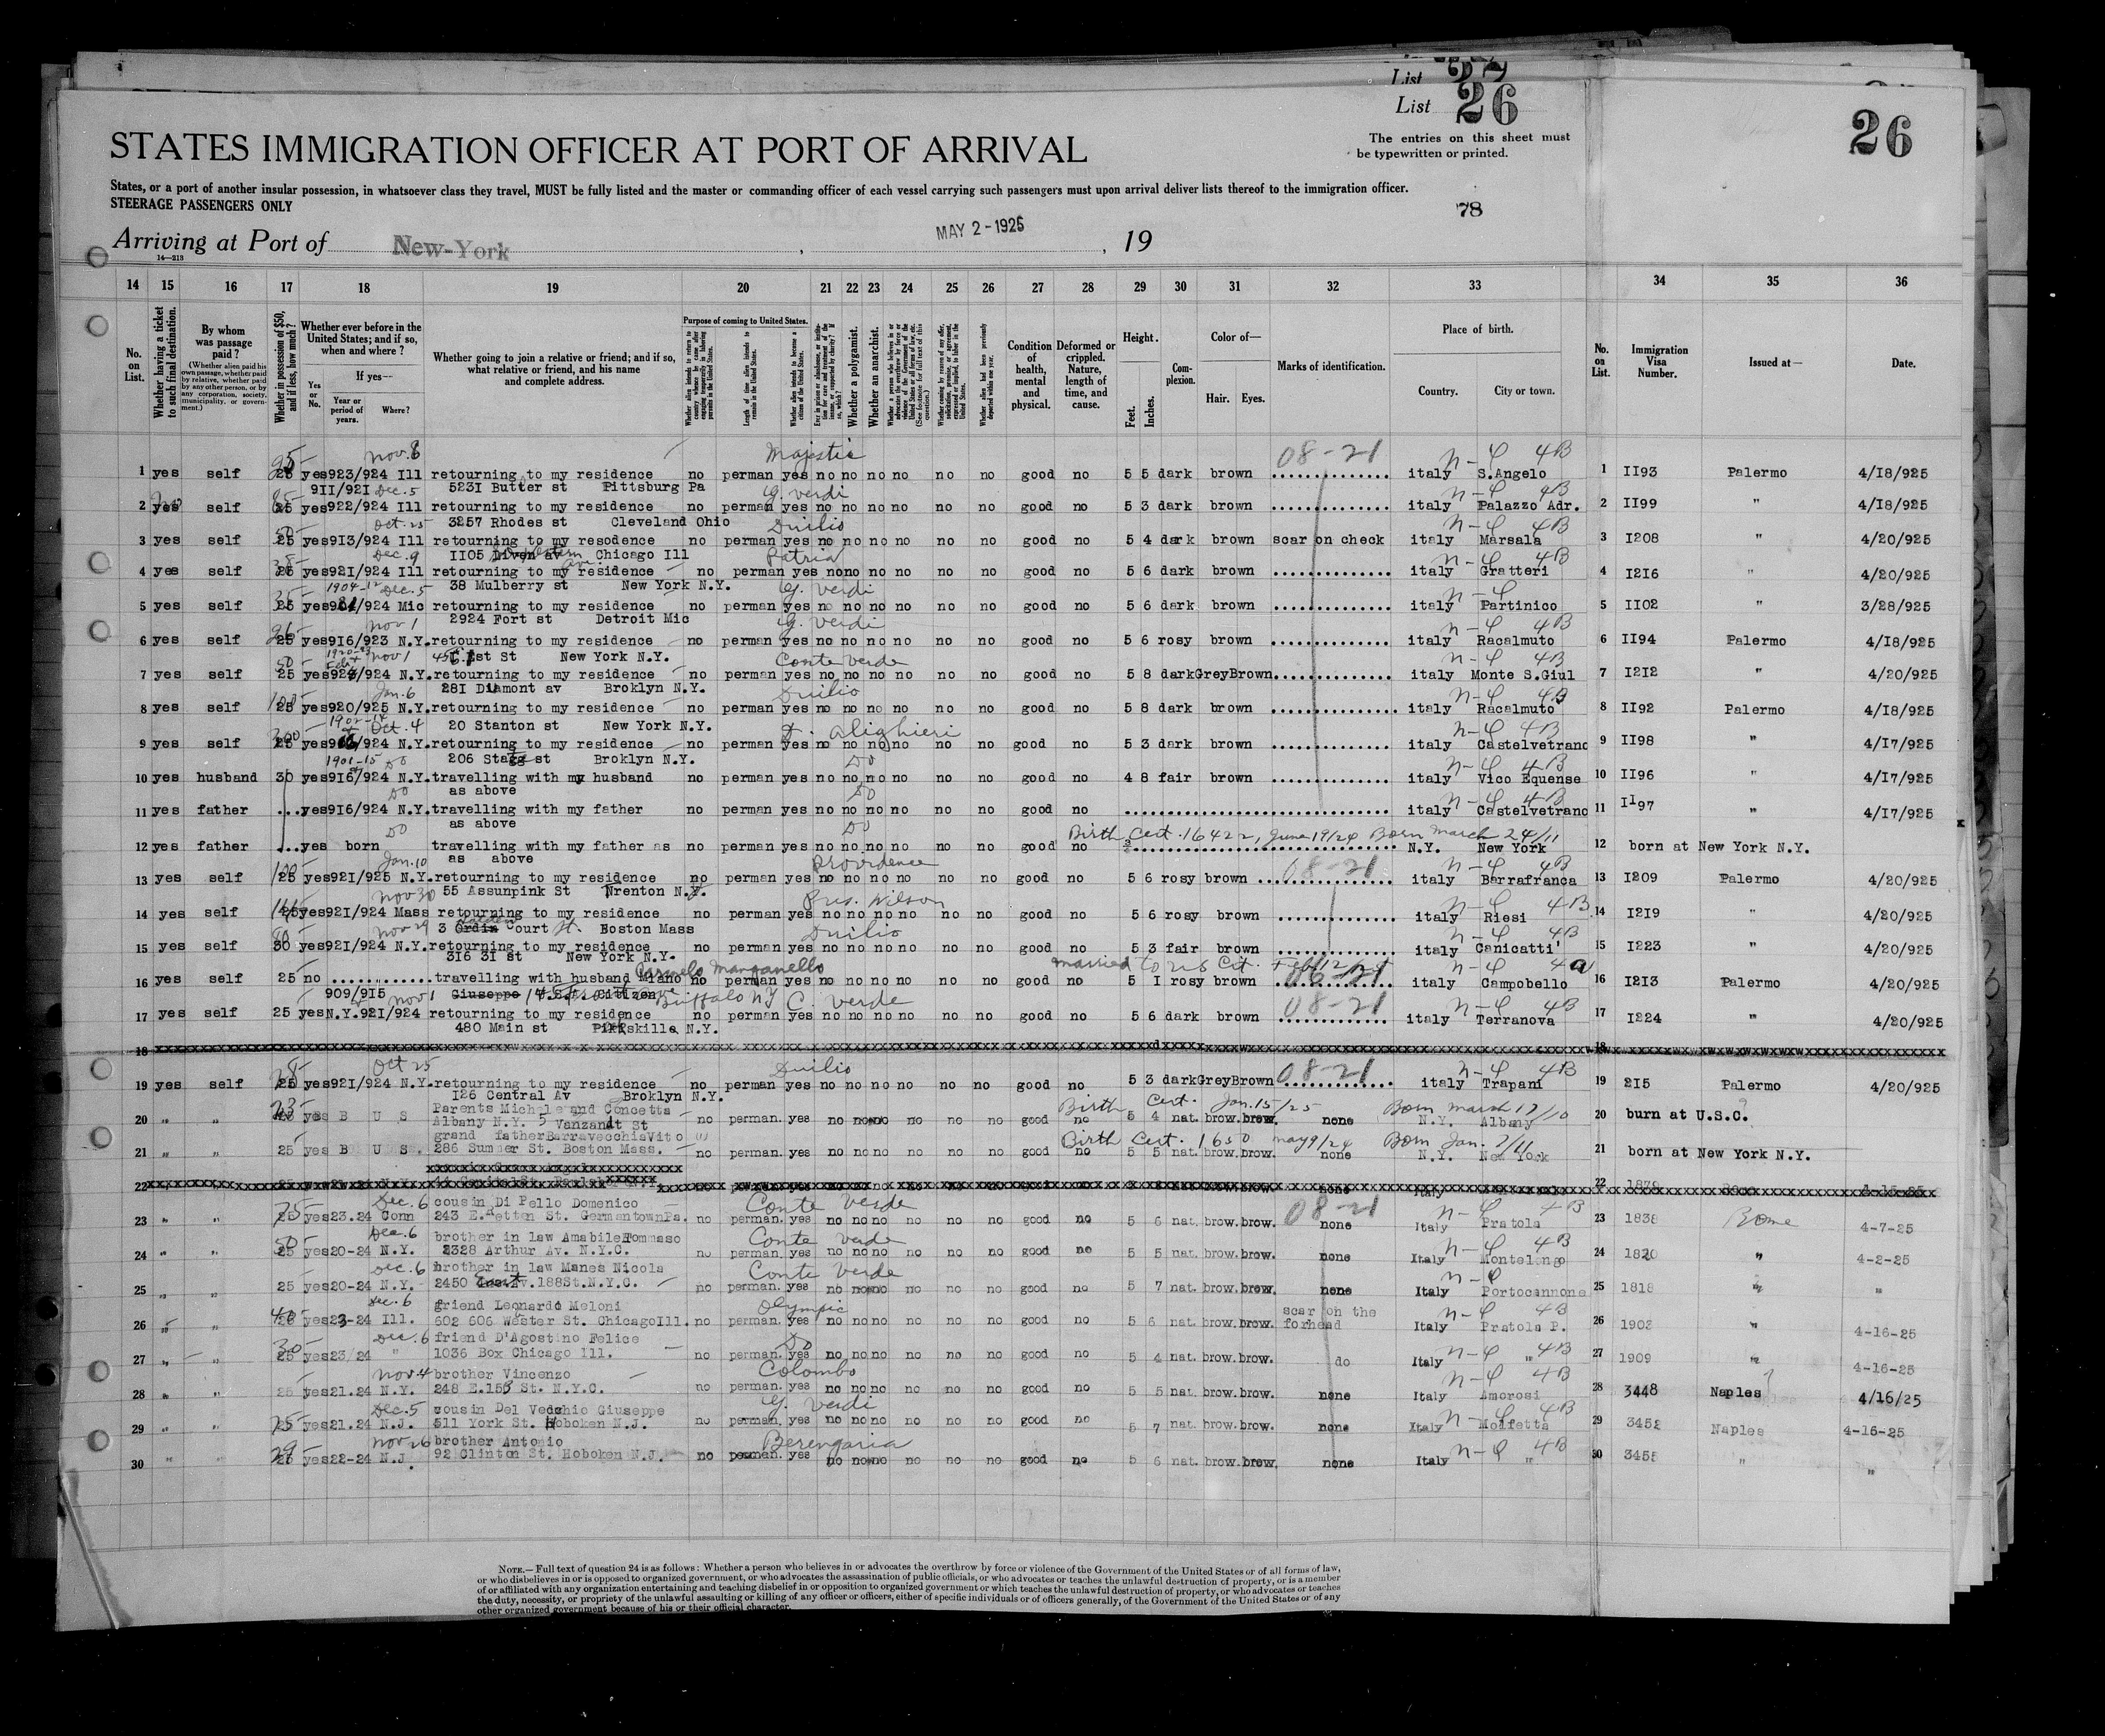 List
List 26
26
The entries on this sheet must
be typewritten or printed.
STATES IMMIGRATION OFFICER AT PORT OF ARRIVAL
States, or a port of another insular possession, in whatsoever class they travel, MUST be fully listed and the master or commanding officer of each vessel carrying such passengers must upon arrival deliver lists thereof to the immigration officer.
STEERAGE PASSENGERS ONLY
78
Arriving at Port of New-York, MAY 2-1925, 19
14—213
14 15 16 17 18 19 20 21 22 23 24 25 26 27 28 29 30 31 32 33 34 35 36
No. on List.
Whether having a ticket to such final destination.
By whom was passage paid?
(Whether alien paid his own passage, whether paid by relative, whether paid by any other person, or by any corporation, society, municipality, or government.)
Whether in possession of $50, and if less, how much?
Whether ever before in the United States; and if so, when and where?
If yes—
Yes or No.
Year or period of years.
Where?
Whether going to join a relative or friend; and if so, what relative or friend, and his name and complete address.
Purpose of coming to United States.
Length of time alien intends to remain in the United States.
Whether alien intends to become a citizen of the United States.
Whether a polygamist.
Whether an anarchist.
Condition of health, mental and physical.
Deformed or crippled. Nature, length of time, and cause.
Height.
Feet.
Inches.
Complexion.
Color of—
Hair. Eyes.
Marks of identification.
Place of birth.
Country. City or town.
No. on List.
Immigration Visa Number.
Issued at—
Date.
Nov. 8 Majestic 08-21 N-L 4B
1 yes self 25 yes 923/924 Ill retourning to my residence no perman yes no no no no no no good no 5 5 dark brown italy S.Angelo 1 II93 Palermo 4/18/925
9II/921 Dec. 5 523I Butter st Pittsburg Pa G. Verdi N-L 4B
2 yes self 25 yes 922/924 Ill retourning to my residence no perman yes no no no no no no good no 5 3 dark brown italy Palazzo Adr. 2 II99 4/18/925
Oct. 25 3257 Rhodes st Cleveland Ohio Duilio N-L 4B
3 yes self 25 yes 913/924 Ill retourning to my resodence no perman yes no no no no no no good no 5 4 dark brown scar on check italy Marsala 3 I208 " 4/20/925
Dec. 9 II05 av Chicago Ill Patria N-L 4B
4 yes self yes 921/924 Ill retourning to my residence no perman yes no no no no no no good no 5 6 dark brown italy Gratteri 4 I216 " 4/20/925
1904-12 Dec. 5 38 Mulberry st New York N.Y. G. Verdi N-L
5 yes self 25 yes /924 Mic retourning to my residence no perman yes no no no no no no good no 5 6 dark brown italy Partinico 5 II02 " 3/28/925
Nov 1 2924 Fort st Detroit Mic G. Verdi N-L 4B
6 yes self yes 916/923 N.Y. retourning to my residence no perman yes no no no no no no good no 5 6 rosy brown italy Racalmuto 6 II94 Palermo 4/18/925
1920-23 Nov 1 St New York N.Y. Conte Verde N-L 4B
7 yes self 25 yes N.Y. retourning to my residence no perman yes no no no no no no good no 5 8 dark Grey Brown italy Monte S.Giul 7 I2I2 " 4/20/925
Jan. 6 28I Diamont av Broklyn N.Y. Duilio N-L 4B
8 yes self 25 yes 920/925 N.Y. retourning to my residence no perman yes no no no no no no good no 5 8 dark brown italy Racalmuto 8 II92 Palermo 4/18/925
1902-14 Oct. 4 20 Stanton st New York N.Y. D. Alighieri N-L 4B
9 yes self 25 yes /924 N.Y. retourning to my residence no perman yes no no no no no no good no 5 3 dark brown italy Castelvetrano 9 II98 " 4/17/925
1901-15 Do 206 Stagg st Broklyn N.Y. Do N-L 4B
10 yes husband 30 yes 916/924 N.Y. travelling with my husband no perman yes no no no no no no good no 4 8 fair brown italy Vico Equense 10 II96 " 4/17/925
Do as above Do N-L 4B
11 yes father ... yes 916/924 N.Y. travelling with my father no perman yes no no no no no no good no italy Castelvetrano 11 II97 " 4/17/925
Do as above Do Birth Cert. 16422, June 19/24 Born March 24/11
12 yes father ... yes born travelling with my father as no perman yes no no no no no no good no N.Y. New York 12 born at New York N.Y.
Jan. 10 as above Providence 08-21 N-L 4B
13 yes self 25 yes 921/925 N.Y. retourning to my residence no perman yes no no no no no no good no 5 6 rosy brown italy Barrafranca 13 I209 Palermo 4/20/925
Nov 30 55 Assunpink St Trenton Pres. Wilson N-L 4B
14 yes self yes 921/924 Mass retourning to my residence no perman yes no no no no no no good no 5 6 rosy brown italy Riesi 14 I219 " 4/20/925
Nov 29 3 Court St. Boston Mass Duilio N-L 4B
15 yes self 30 yes 921/924 N.Y. retourning to my residence no perman yes no no no no no no good no 5 3 fair brown italy Canicatti' 15 I223 " 4/20/925
316 31 st New York N.Y. Carmelo Manganello Married to U.S. Cit. N-L
16 yes self 25 no travelling with husband Miano no perman yes no no no no no no good no 5 I rosy brown italy Campobello 16 I213 Palermo 4/20/925
909/915 Nov 1 Giuseppe Citizen Buffalo NY C. Verde 08-21 N-L 4B
17 yes self 25 yes N.Y. 921/924 retourning to my residence no perman yes no no no no no no good no 5 6 dark brown italy Terranova 17 I224 " 4/20/925
480 Main st N.Y.
18 18
Oct 25 Duilio 08-21 N-L 4B
19 yes self 25 yes 921/924 N.Y. retourning to my residence no perman yes no no no no no no good no 5 3 dark Grey Brown italy Trapani 19 215 Palermo 4/20/925
I26 Central Av Broklyn N.Y.
Parents Michele and Concetta Birth Cert. Jan. 15/25 Born March 17/10
20 " " yes B U S Albany N.Y. 5 Vanzandt St no perman. yes no no no no no no good no 5 4 nat. brow. brow. none N.Y. Albany 20 burn at U.S.C.
grand father Barravecchia Vito Birth Cert. 1650 May 9/24 Born Jan. 2/11
21 " " 25 yes B U S. 286 Sumner St. Boston Mass. no perman. yes no no no no no no good no 5 5 nat. brow. brow. none N.Y. New York 21 born at New York N.Y.
22 22
Dec. 6 cousin Di Pello Domenico Conte Verde 08-21 N-L 4B
23 " " yes 23.24 Conn 243 E. St. Germantown Pa. no perman. yes no no no no no no good no 5 6 nat. brow. brow. none Italy Pratola 23 1838 Rome 4-7-25
Dec. 6 brother in law Amabile Tommaso Conte Verde N-L 4B
24 " " 25 yes 20-24 N.Y. 2328 Arthur Av. N.Y.C. no perman. yes no no no no no no good no 5 5 nat. brow. brow. none Italy Montelongo 24 1820 " 4-2-25
Dec. 6 brother in law Manes Nicola Conte Verde N-L
25 " " 25 yes 20-24 N.Y. 2450 188St. N.Y.C. no perman. yes no no no no no no good no 5 7 nat. brow. brow. none Italy Portocannone 25 1818 " "
Dec. 6 friend Leonardo Meloni Olympic scar on the N-L 4B
26 " " yes 23-24 Ill. 602 606 Wester St. Chicago Ill. no perman. yes no no no no no no good no 5 6 nat. brow. brow. forhead Italy Pratola P. 26 1908 " 4-16-25
Dec. 6 friend D'Agostino Felice Do N-L 4B
27 " " 25 yes 23/24 " 1036 Box Chicago Ill. no perman. yes no no no no no no good no 5 4 nat. brow. brow. do Italy " 27 1909 " 4-16-25
Nov 4 brother Vincenzo Colombo N-L 4B
28 " " 25 yes 21.24 N.Y. 248 E.153 St. N.Y.C. no perman. yes no no no no no no good no 5 5 nat. brow. brow. none Italy Amorosi 28 3448 Naples 4/16/25
Dec. 5 cousin Del Vecchio Giuseppe G. Verdi N-L 4B
29 " " 25 yes 21.24 N.J. 511 York St. Hoboken N.J. no perman. yes no no no no no no good no 5 7 nat. brow. brow. none Italy Molfetta 29 3452 Naples 4-16-25
Nov 26 brother Antonio Berengaria N-L 4B
30 " " yes 22-24 N.J. 92 Clinton St. Hoboken N.J. no perman. yes no no no no no no good no 5 6 nat. brow. brow. none Italy " 30 3455 " "
NOTE.—Full text of question 24 is as follows: Whether a person who believes in or advocates the overthrow by force or violence of the Government of the United States or of all forms of law,
or who disbelieves in or is opposed to organized government, or who advocates the assassination of public officials, or who advocates or teaches the unlawful destruction of property, or is a member
of or affiliated with any organization entertaining and teaching disbelief in or opposition to organized government or which teaches the unlawful destruction of property, or who advocates or teaches
the duty, necessity, or propriety of the unlawful assaulting or killing of any officer or officers, either of specific individuals or of officers generally, of the Government of the United States or of any
other organized government because of his or their official character.